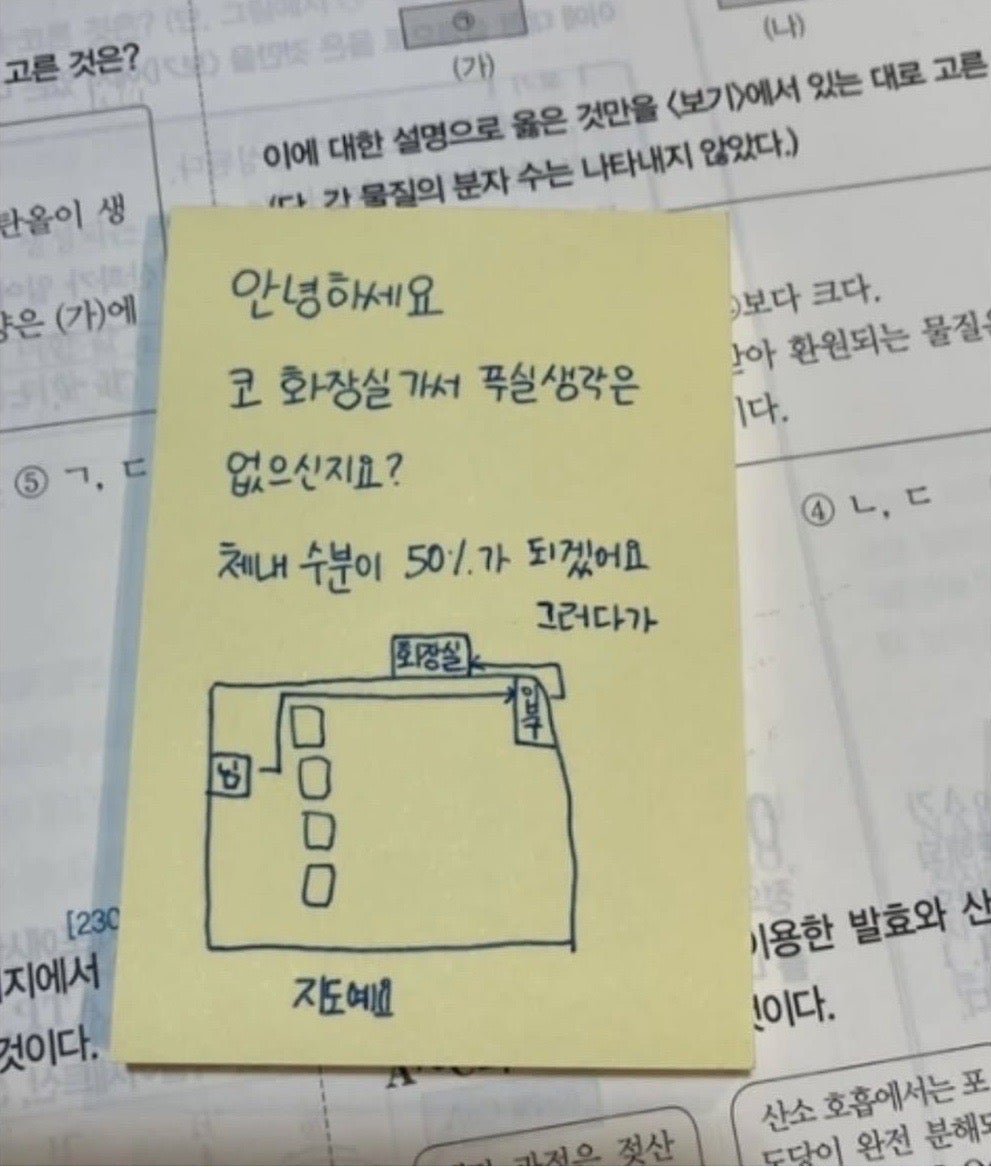 고른 것은?
㉠
(가)
(나)
이에 대한 설명으로 옳은 것만을 <보기>에서 있는 대로 고른
(단, 각 물질의 분자 수는 나타내지 않았다.)
탄올이 생
양은 (가)에
보다 크다.
아 환원되는 물질은
이다.
⑤ ㄱ, ㄷ
④ ㄴ, ㄷ
안녕하세요
코 화장실가서 푸실생각은
없으신지요?
체내 수분이 50%가 되겠어요
그러다가
화장실
입구
님
지도예요
[230
지에서
것이다.
이용한 발효와 산
것이다.
과정은 젖산
산소 호흡에서는 포
도당이 완전 분해되